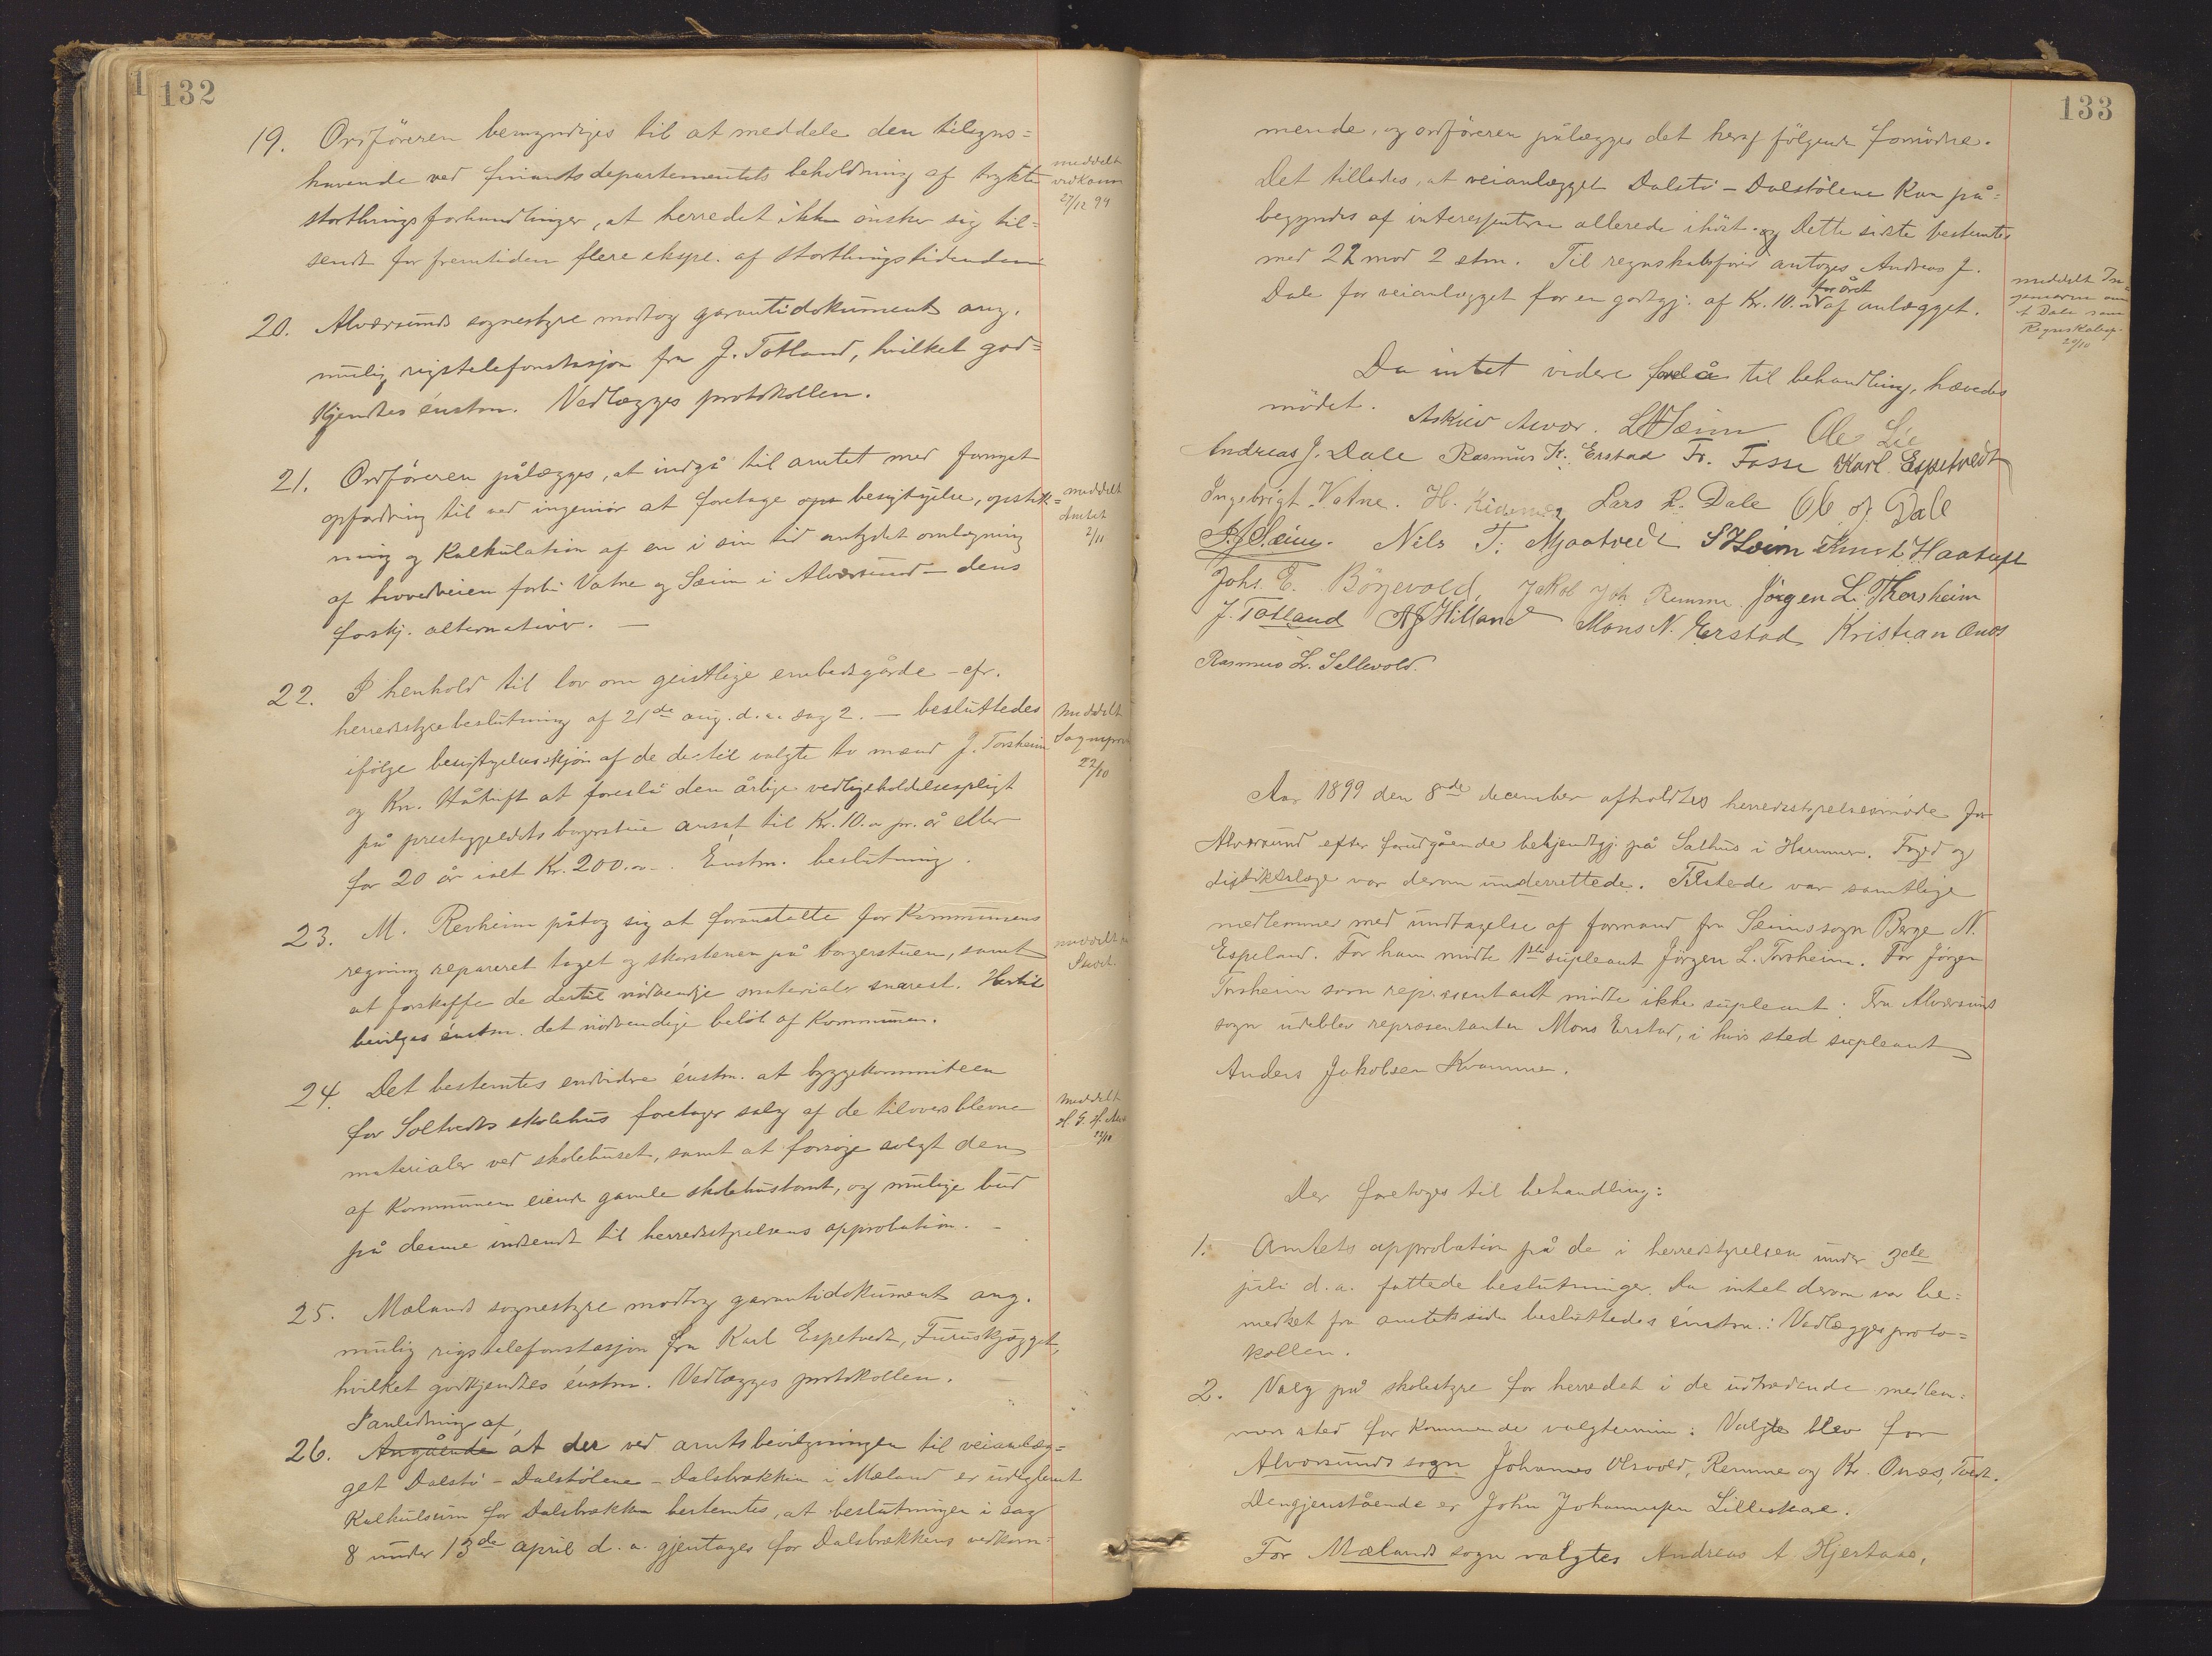 132
19. Ordföreren bemyndiges til at meddele den tilsyns=
havende ved finantsdepartementets beholdning af trykte
storthingsforhandlinger, at herredet ikke önsker sig til=
sendt for fremtiden flere expl. af storthingstidenden
meddelt
vedkom
27/12 99
20. Alversunds sognestyre modtog garantidokument ang.
mulig rigstelefonstasjon fra J. Totland, hvilket god=
kjendtes énstm. Vedlægges protokollen.
21. Ordföreren pålægges, at indgå til amtet med fornyet
opfordring til ved ingeniör at foretage besigtigelse, opstik=
ning og kalkulation af en i sin tid antydet omlægning
af hovedveien forbi Vatne og Sæim i Alversund – dens
forskj. alternativer. —
meddelt
Amtet
2/11
22. I henhold til lov om geistlige embedsgårde – cfr.
herredsstyrebeslutning af 21de aug. d. a. sag 2. — besluttedes
ifölge besigtigelsesskjön af de dertil valgte to mænd J. Torsheim
og Kn. Håtuft at foreslå den årlige vedligeholdelsespligt
på prestegjeldets borgerstue ansat til Kr. 10.00 pr. år eller
for 20 år ialt Kr. 200.00. Énstm. beslutning.
meddelt
Sogneprs
22/10
23. M. Revheim påtog sig at foranstalte for Kommunens
regning repareret taget og skorstenen på borgerstuen, samt
at forskaffe de dertil nödvendige materialer snarest. Hertil
bevilges énstm. det nödvendige belöb af Kommunen.
meddelt
24. Det bestemtes endvidere énstm. at byggekommiteen
for Soltvedts skolehus foretager salg af de tiloversblevne
materialer ved skolehuset, samt at forsöge solgt den
af Kommunen eiende gamle skolehustomt, og mulige bud
på denne indsendt til herredsstyrelsens approbation. –
meddelt
25. Mælands sognestyre modtog garantidokument ang.
mulig rigstelefonstasjon fra Karl Espetvedt, Furuskjægget,
hvilket godkjendtes énstm. Vedlægges protokollen.
I anledning af
26. Angående at der ved amtsbevilgningen til veianlæg=
get Dalstö – Dalstölene – Dalsbrækken i Mæland er udeglemt
Kalkulsum for Dalsbrækken bestemtes, at beslutningen i sag
8 under 13de april d. a. gjentages for Dalsbrækkens vedkom=
133
mende, og ordföreren pålægges det heraf fölgende fornödne.
Det tillades, at veianlægget Dalstö – Dalstölene kan på=
begyndes af interessenterne allerede i höst. og Dette sidste bestemtes
med 22 mod 2 stm. Til regnskabsförer antoges Andreas J.
for året
Dale for veianlægget for en godtgj. af Kr. 10.00 af anlægget.
meddelt In-
geniøren om
A Dale som
Regnskabsf.
20/10
Da intet videre forelå til behandling, hævedes
mödet.
Askild Alvær. L Sæim Ole Lie
Andreas J. Dale Rasmus K. Erstad Fr. Fosse Karl Espetvedt
Ingebrigt Vatne. H. Lars R. Dale Ole J. Dale
Nils T. Mjaatvedt S Heim Knut Haatuft
Johs. E. Böyevold, Jakob Joh. Remme Jörgen L. Thorsheim
J. Totland A J Hilland Mons N. Erstad Kristian Onæs
Rasmus L. Sellevold.
Aar 1899 den 8de december afholdtes herredsstyrelsesmöde for
Alversund efter forudgående bekjendtgj. på Salhus i Hammer. Foged og
distriktslæge var derom underrettede. Tilstede var samtlige
medlemmer med undtagelse af formand fra Sæims sogn Berge N.
Espeland. For ham mödte 1ste supleant Jörgen L. Torsheim. For Jörgen
Torsheim som representant mödte ikke supleant. Fra Alversunds
sogn udeblev repræsentanten Mons Erstad, i hvis sted supleant
Anders Jakobsen Kvamme.
Der foretoges til behandling:
1. Amtets approbation på de i herredstyrelsen under 3de
juli d. a. fattede beslutninger. Da intet derom var be=
merket fra amtets side besluttedes énstm.: Vedlægges proto=
kollen.
2. Valg på skolestyre for herredet i de udtrædende medlem=
mers sted for kommende valgtermin: Valgte blev for
Alversunds sogn Johannes Olsvold, Remme og Kr. Onæs, Tvedt.
Dengjenstående er John Johannessen Lilleskare.
For Mælands sogn valgtes Andreas A. Hjertaas,